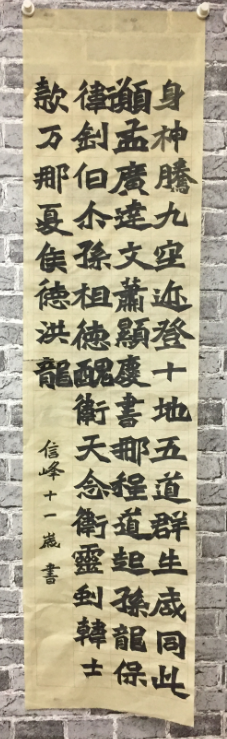 身神騰九空迹登十地五道群生咸同此
願孟廣達文蕭顯慶書那程道起孫龍保
衛釗伯尒孫祖德醜衛天念衛靈釗韓士
款万那夏侯德洪龍
信峰十一歲書